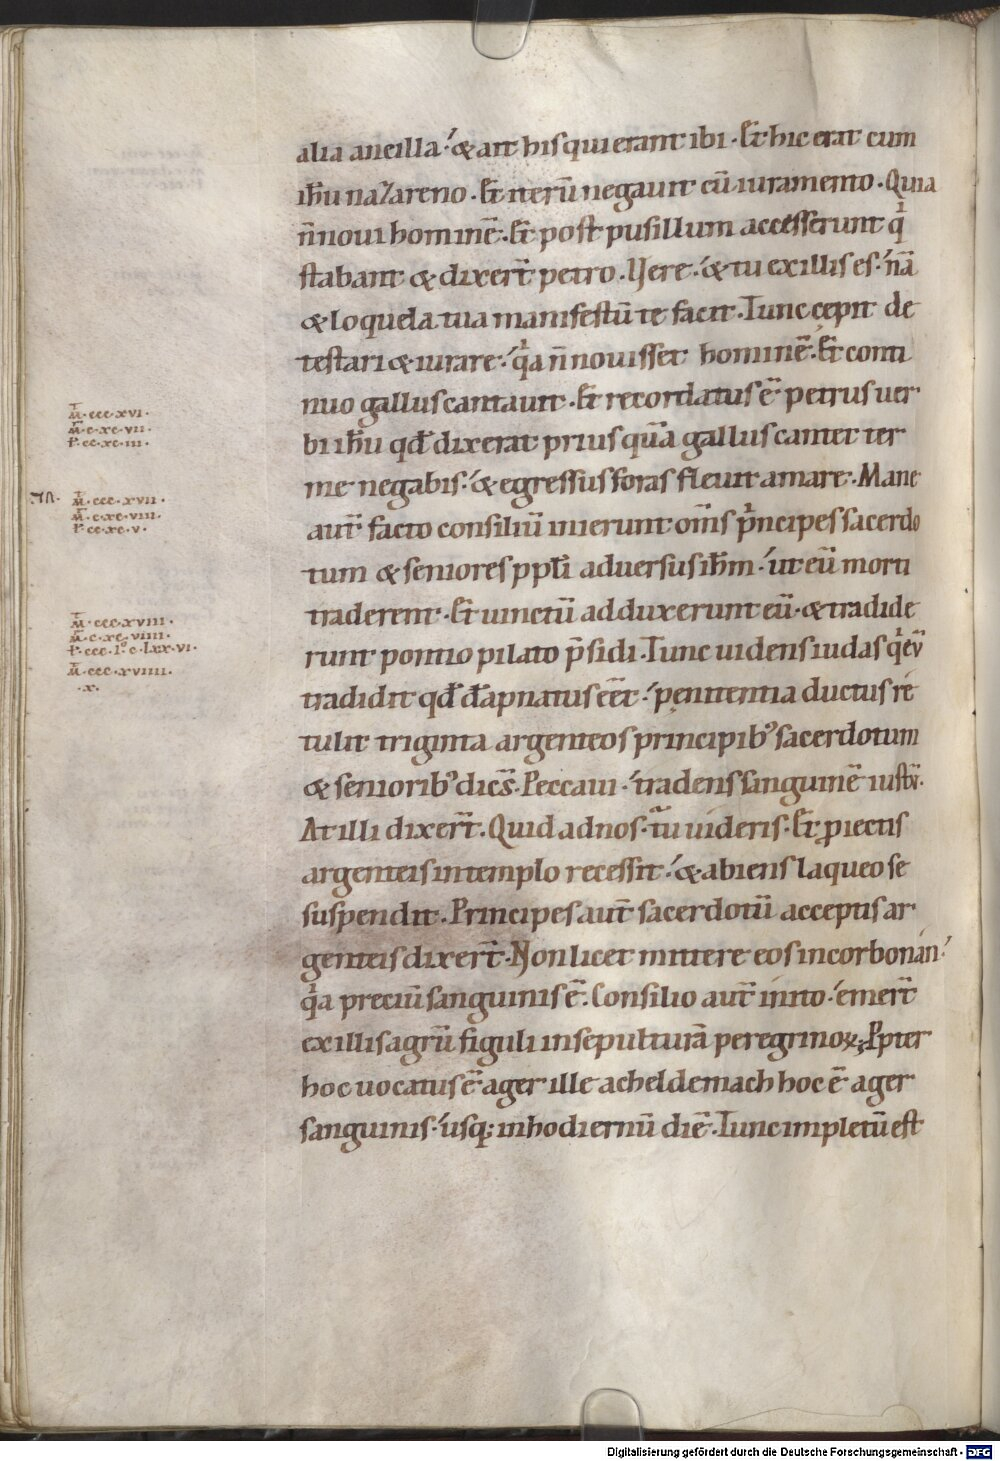 alia ancilla · & ait his qui erant ibi · Et hic erat cum
ih̄u nazareno · Et iterū negauit cū iuramento · Quia
n̄ noui hominē · Et post pusillum accesserunt qi
stabant & dixerт̄ petro · Uere · & tu ex illis es · nā
& loquela tua manifestū te facit · Tunc cępit de
testari & iurare · qia n̄ nouisset hominē · Et conti
nuo gallus cantauit · Et recordatus ē petrus uer
bi ih̄u qd̄ dixerat prius quā gallus cantet ter
me negabis · & egressus foras fleuit amare · Mane
aut̄ facto consiliū inierunt om̄s principes sacerdo
tum & seniores ppli aduersus ih̄m · ut eū morti
traderent · Et uinctū adduxerunt eū · & tradide
runt pontio pilato p̄sidi · Tunc uidens iudas qi eū
tradidit qd̄ dāpnatus eēt · penitentia ductus re
tulit triginta argenteos principibꝰ sacerdotum
& senioribꝰ dicēs · Peccaui · tradens sanguinē iustū ·
At illi dixert̄ · Quid ad nos · tu uideris · Et ꝓiectis
argenteis in templo recessit · & abiens laqueo se
suspendit · Principes aut̄ sacerdotū acceptis ar
genteis dixert̄ · Non licet mittere eos in corbonan ·
qia preciū sanguinis ē · Consilio aut̄ inito · emert̄
ex illis agrū figuli in sepulturā peregrinoꝝ · Ꝓpter
hoc uocatus ē ager ille acheldemach hoc ē ager
sanguinis · usq; in hodiernū diē · Tunc impletū est
m̄ · ccc · xvi ·
m̄ · c · xc · vii ·
ī · cc · xc · iii ·
m̄ · ccc · xvii ·
m̄ · c · xc · viii ·
ī · cc · xc · v ·
m̄ · ccc · xviii ·
m̄ · c · xc · viiii ·
m̄ · ccc · xviiii ·
· x ·
Digitalisierung gefördert durch die Deutsche Forschungsgemeinschaft - DFG